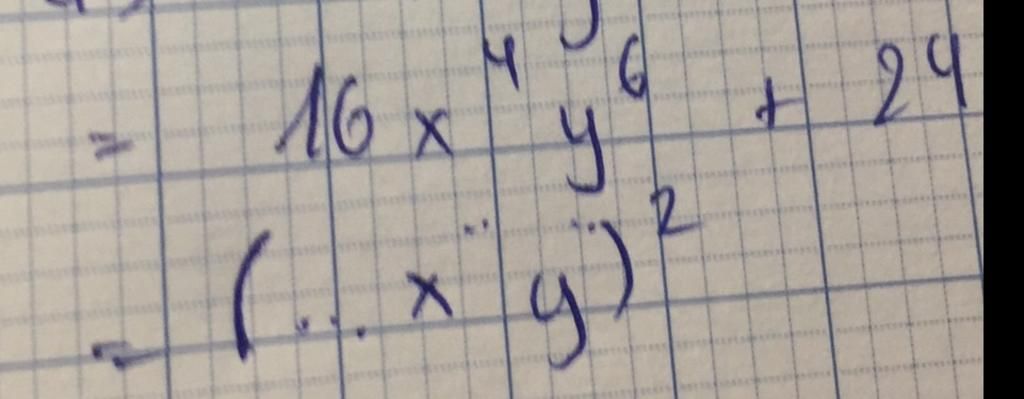 = 16x⁴y⁶ + 24
= (... x¨ y¨)²